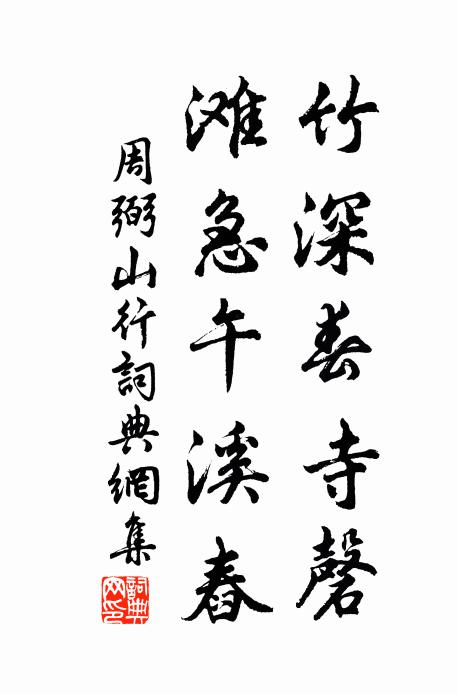 竹深春寺磬
滩急午溪舂
周弼山行詞典網集
詞典网印